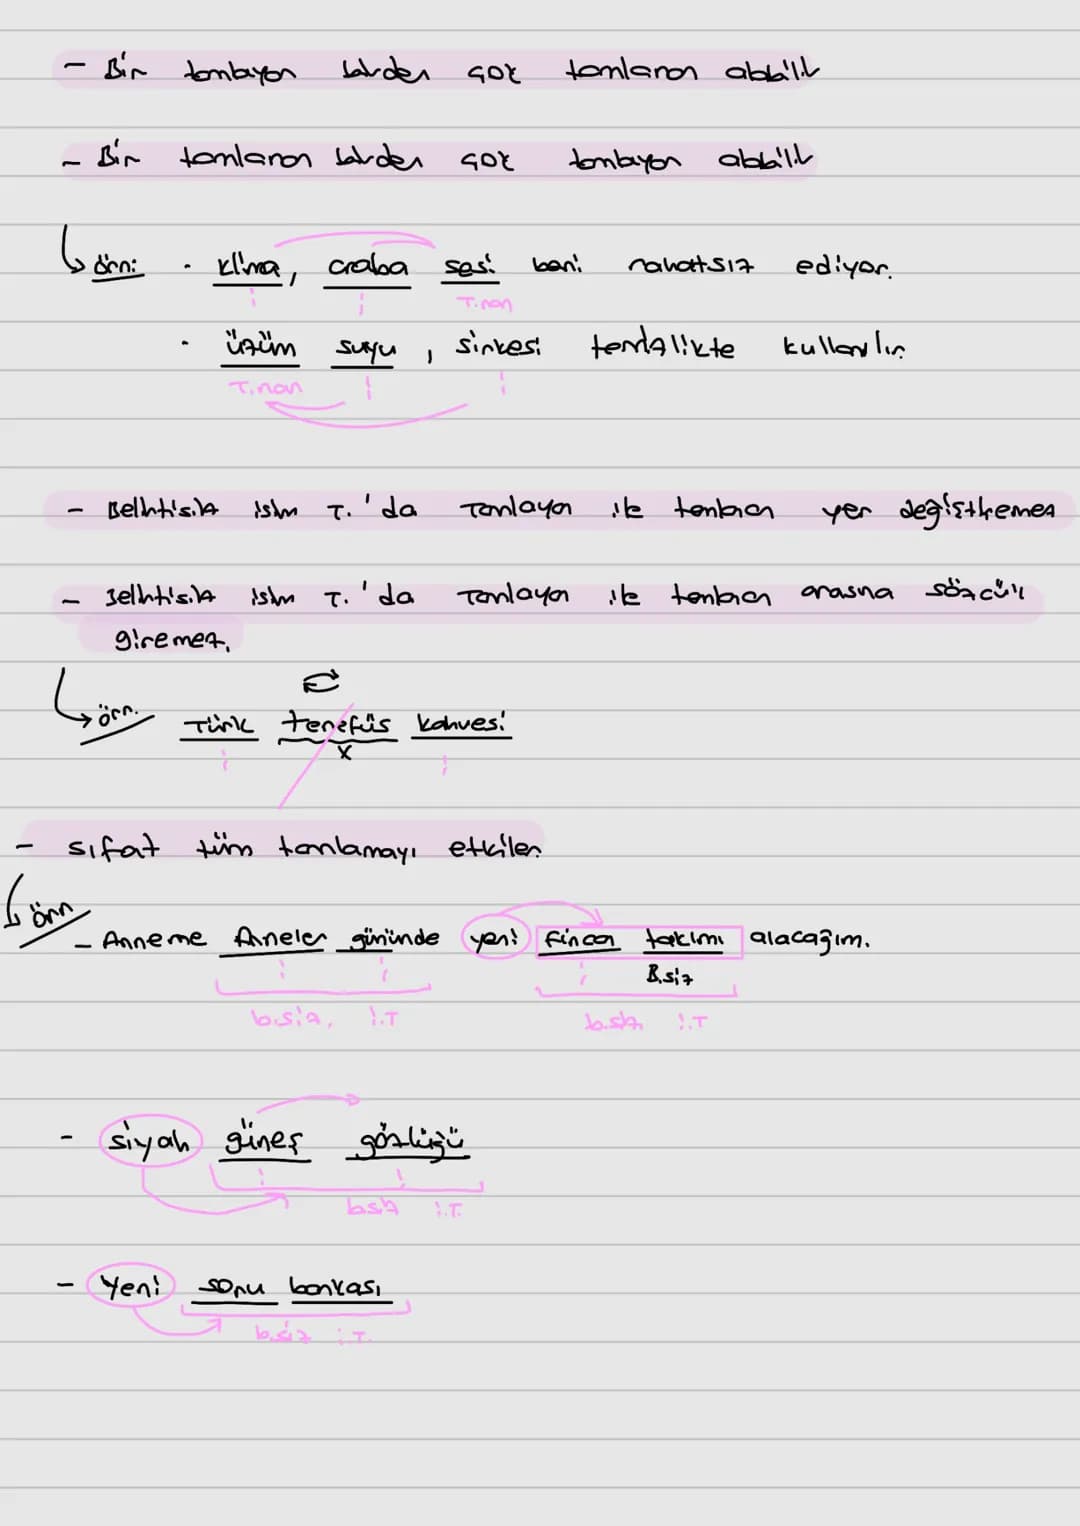 - Bir tamlayan birden çok tamlanan alabilir
- Bir tamlanan birden çok tamlayan alabilir
örn: • klima, araba sesi beni rahatsız ediyor.
i i T.nan
• üzüm suyu, sirkesi temizlikte kullanılır
T.nan i i
- Belirtisiz isim T.'da Tamlayan ile tamlanan yer değiştiremez
- Belirtisiz isim T.'da Tamlayan ile tamlanan arasına sözcük
giremez.
örn. Türk teneffüs kahvesi
i x i
- sıfat tüm tamlamayı etkiler.
örn
- Anneme Anneler gününde yeni fincan takımı alacağım.
i i i B.siz
b.siz. İ.T b.siz. İ.T
- siyah güneş gözlüğü
i i
b.siz İ.T.
- Yeni soru bankası
b.siz İ.T.